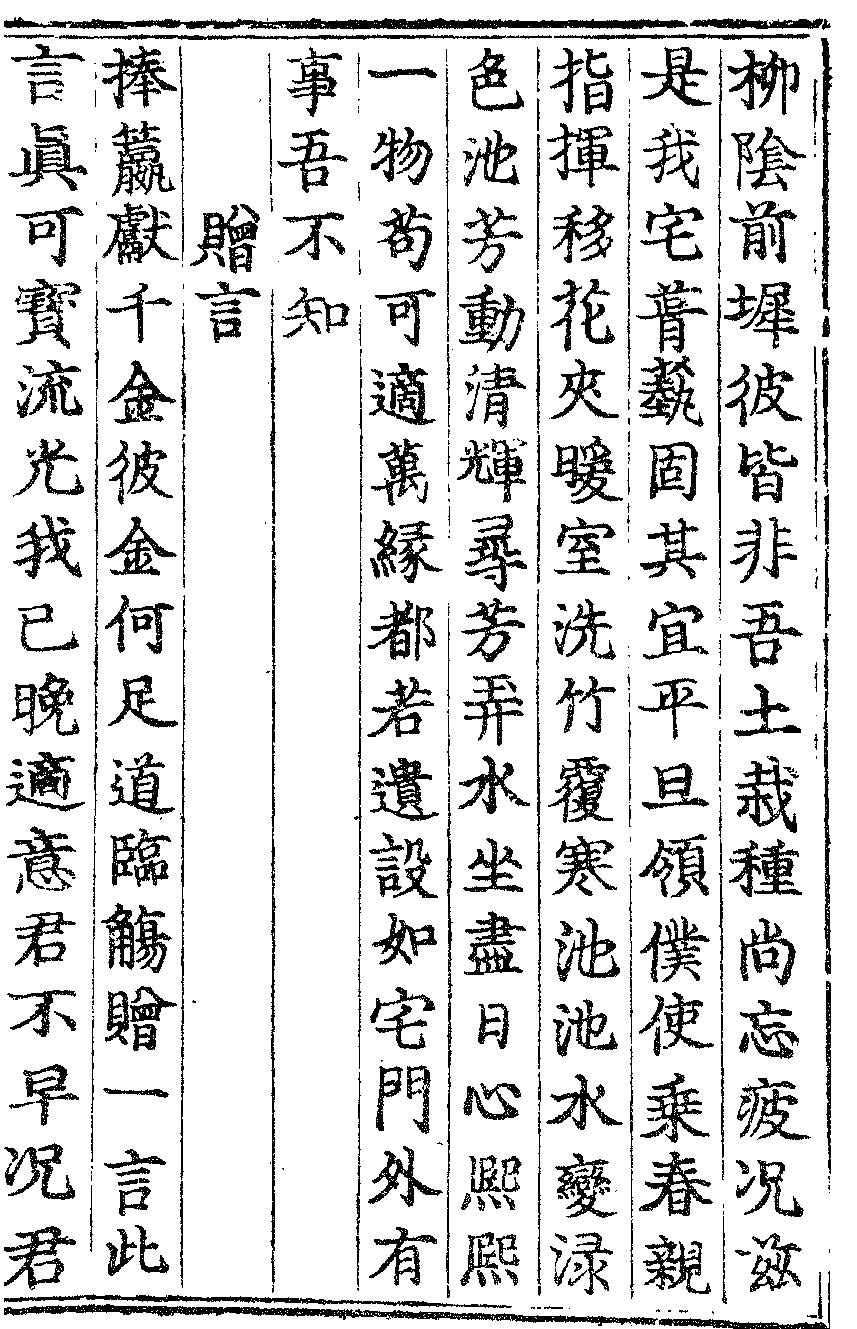 柳陰前墀彼皆非吾土栽種尚忘疲况兹
是我宅葺蓺固其宜平旦領僕使乗春親
指揮移花夾暖室洗竹覆寒池池水變渌
色池芳動清輝尋芳弄水坐盡日心熈熈
一物苟可適萬縁都若遺設如宅門外有
事吾不知
贈言
捧籝獻千金彼金何足道臨觴贈一言此
言眞可寶流光我已晚適意君不早况君